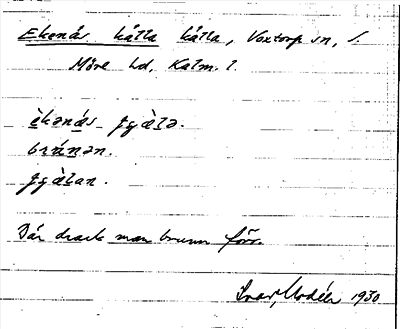 Ekenäs källa källa, Voxtorp sn, S.
Möre hd, Kalm. l.
èkənás
brúnən.
Där drack man brunn förr.
Ivar Modéer 1930